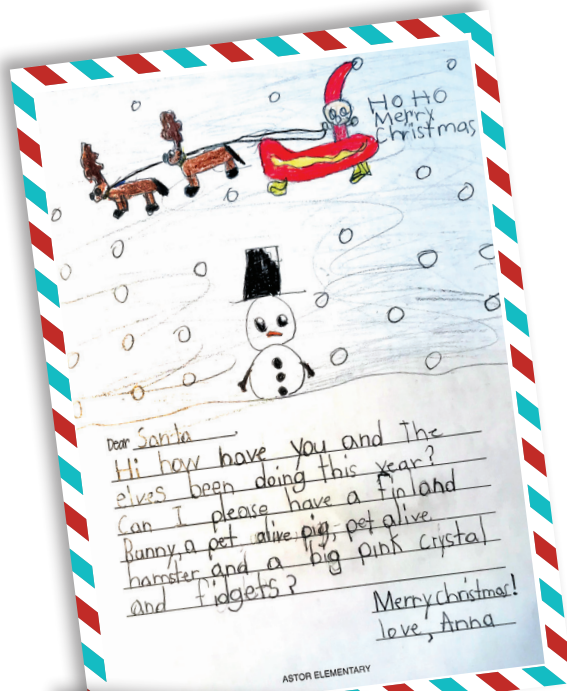 HO HO
Merry
Christmas
Dear Santa
Hi how have you and The
elves been doing this year?
Can I please have a finland
Bunny, a pet alive pig, pet alive
hamster and a big pink crystal
and fidgets?
Merry christmas!
love, Anna
ASTOR ELEMENTARY